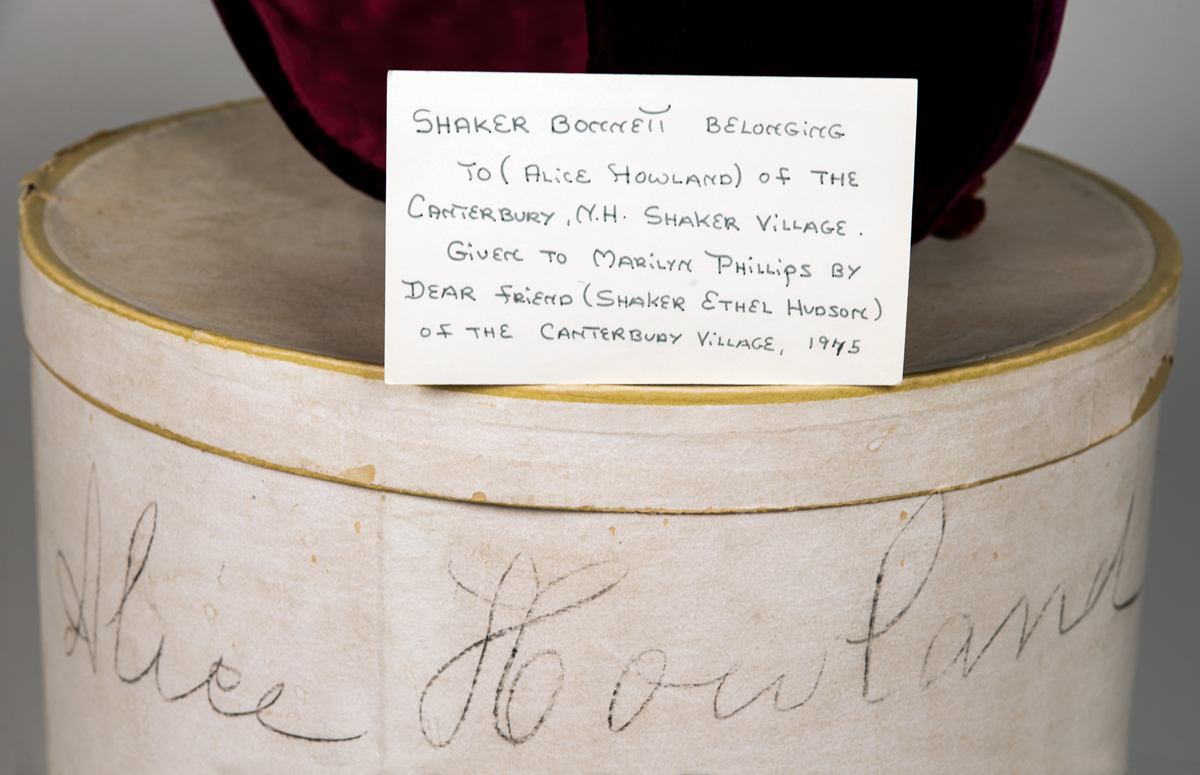 SHAKER BONNETT BELONGING
TO (ALICE HOWLAND) OF THE
CANTERBURY, N.H. SHAKER VILLAGE.
GIVEN TO MARILYN PHILLIPS BY
DEAR FRIEND (SHAKER ETHEL HUDSON)
OF THE CANTERBURY VILLAGE, 1975
Alice Howland